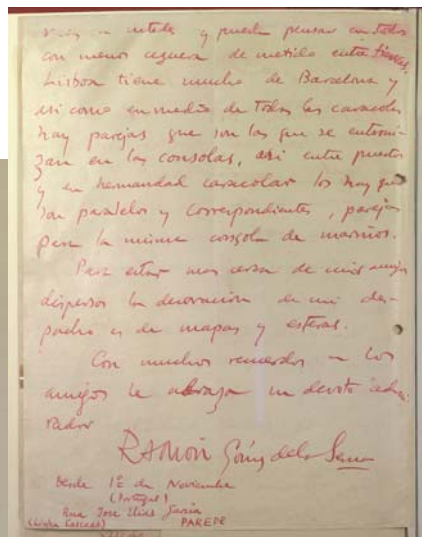 en ustedes y puedo pensar en todo
con menos ceguera de metido entre tierras.
Lisboa tiene mucho de Barcelona y
así como en medio de todas las caracolas
hay parejas que son las que se entroni-
zan en las consolas, así entre puertos
y en hermandad caracolar los hay que
son paralelos y correspondientes, parejas
para la misma consola de marinos.
Para estar mas cerca de mis amigos
dispersos la decoración de mi des-
pacho es de mapas y esteras.
Con muchos recuerdos a los
amigos le abraza un devoto admi-
rador
RAMÓN Gómez de la Serna
Desde 1º de Noviembre
(Portugal)
Rua Jose Elias Garcia
(Linha Cascaes) PAREDE